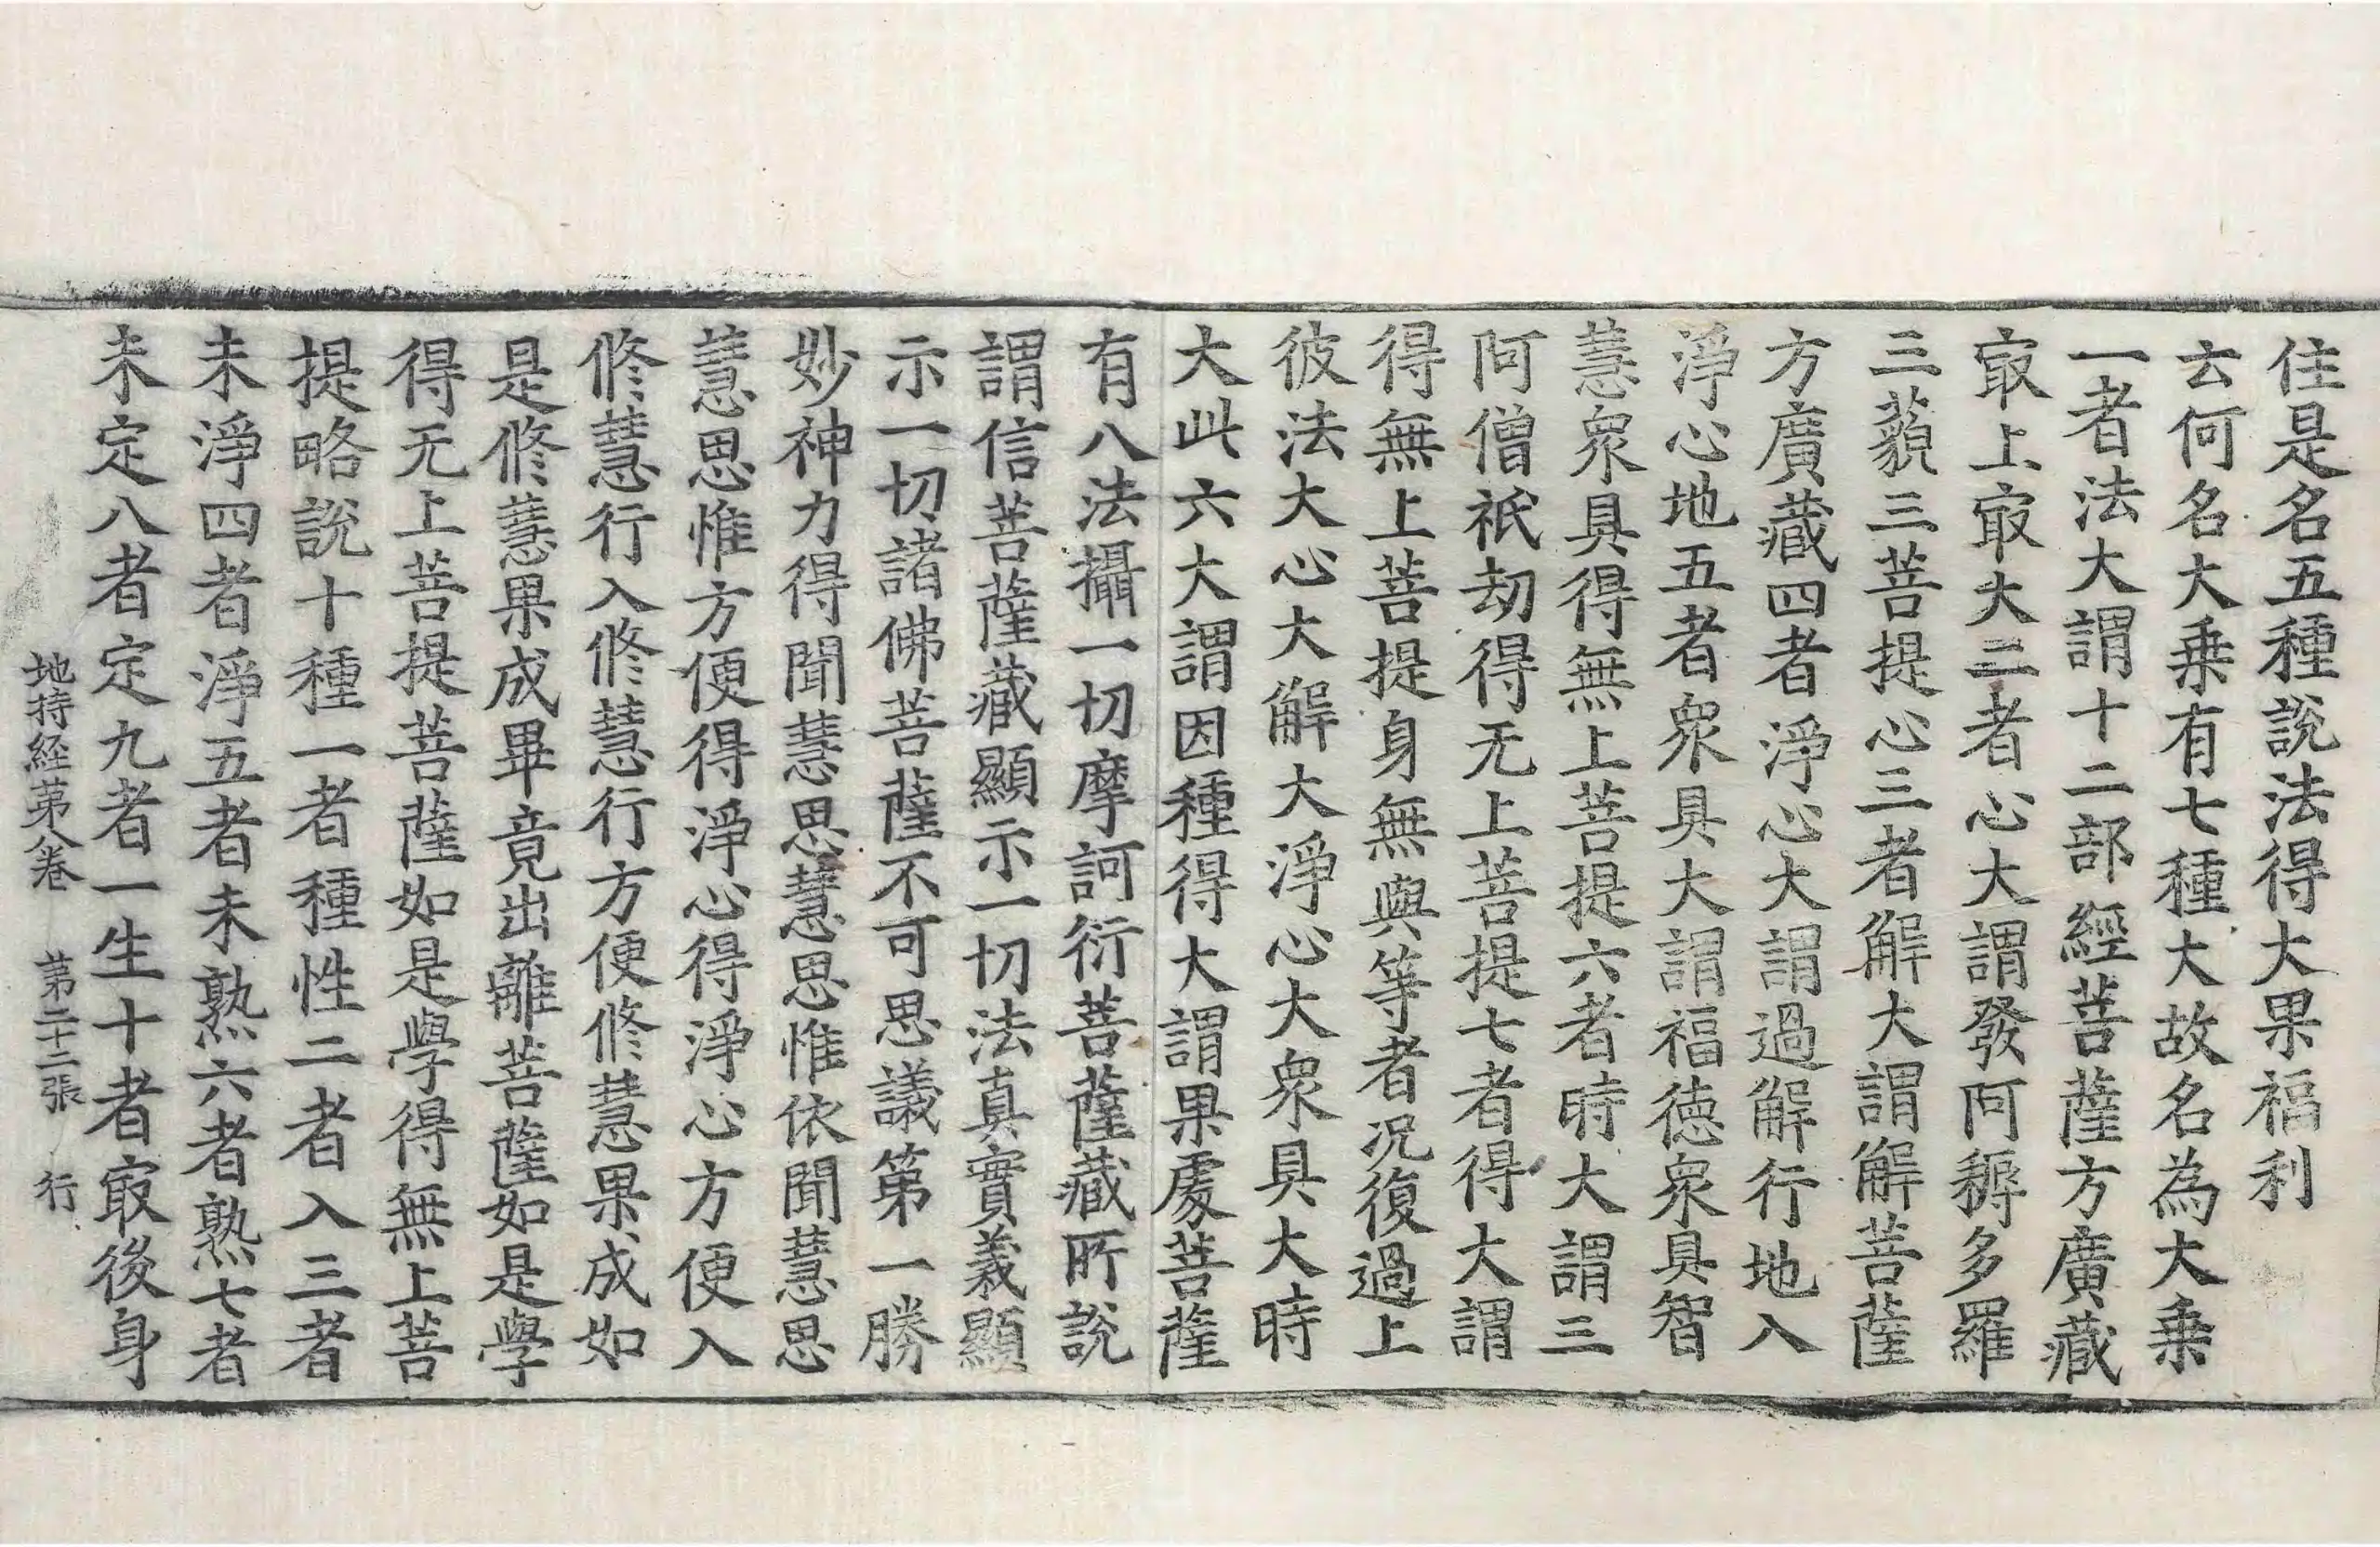 住是名五種說法得大果福利
云何名大乗有七種大故名為大乗
一者法大謂十二部經菩薩方廣藏
㝡上㝡大二者心大謂發阿耨多羅
三藐三菩提心三者解大謂解菩薩
方廣藏四者淨心大謂過解行地入
淨心地五者衆具大謂福德衆具智
慧衆具得無上菩提六者時大謂三
阿僧祇劫得无上菩提七者得大謂
得無上菩提身無與等者况復過上
彼法大心大解大淨心大衆具大時
大此六大謂因種得大謂果處菩薩
有八法攝一切摩訶衍菩薩藏所說
謂信菩薩藏顯示一切法真實義顯
示一切諸佛菩薩不可思議第一勝
妙神力得聞慧思慧思惟依聞慧思
慧思惟方便得淨心得淨心方便入
修慧行入修慧行方便修慧果成如
是修慧果成畢竟出離菩薩如是學
得无上菩提菩薩如是學得無上菩
提略說十種一者種性二者入三者
未淨四者淨五者未熟六者熟七者
未定八者定九者一生十者㝡後身
地持經第八卷 第二十二張 行